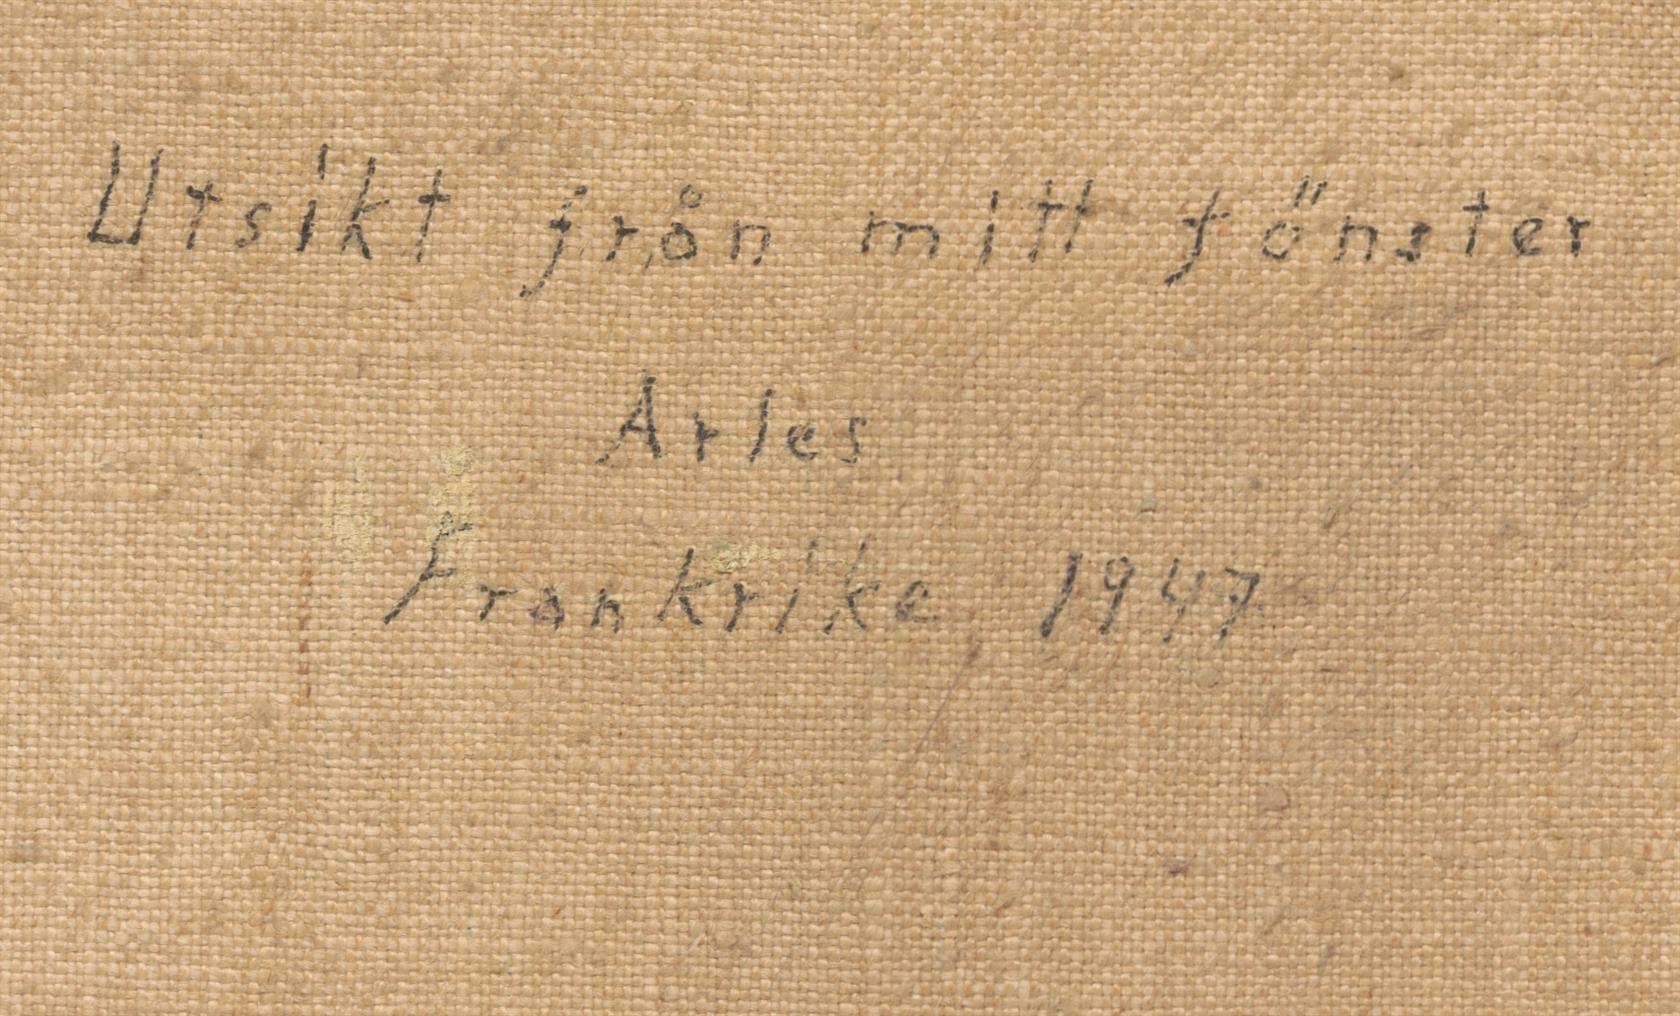 Utsikt från mitt fönster
Arles
Frankrike, 1947